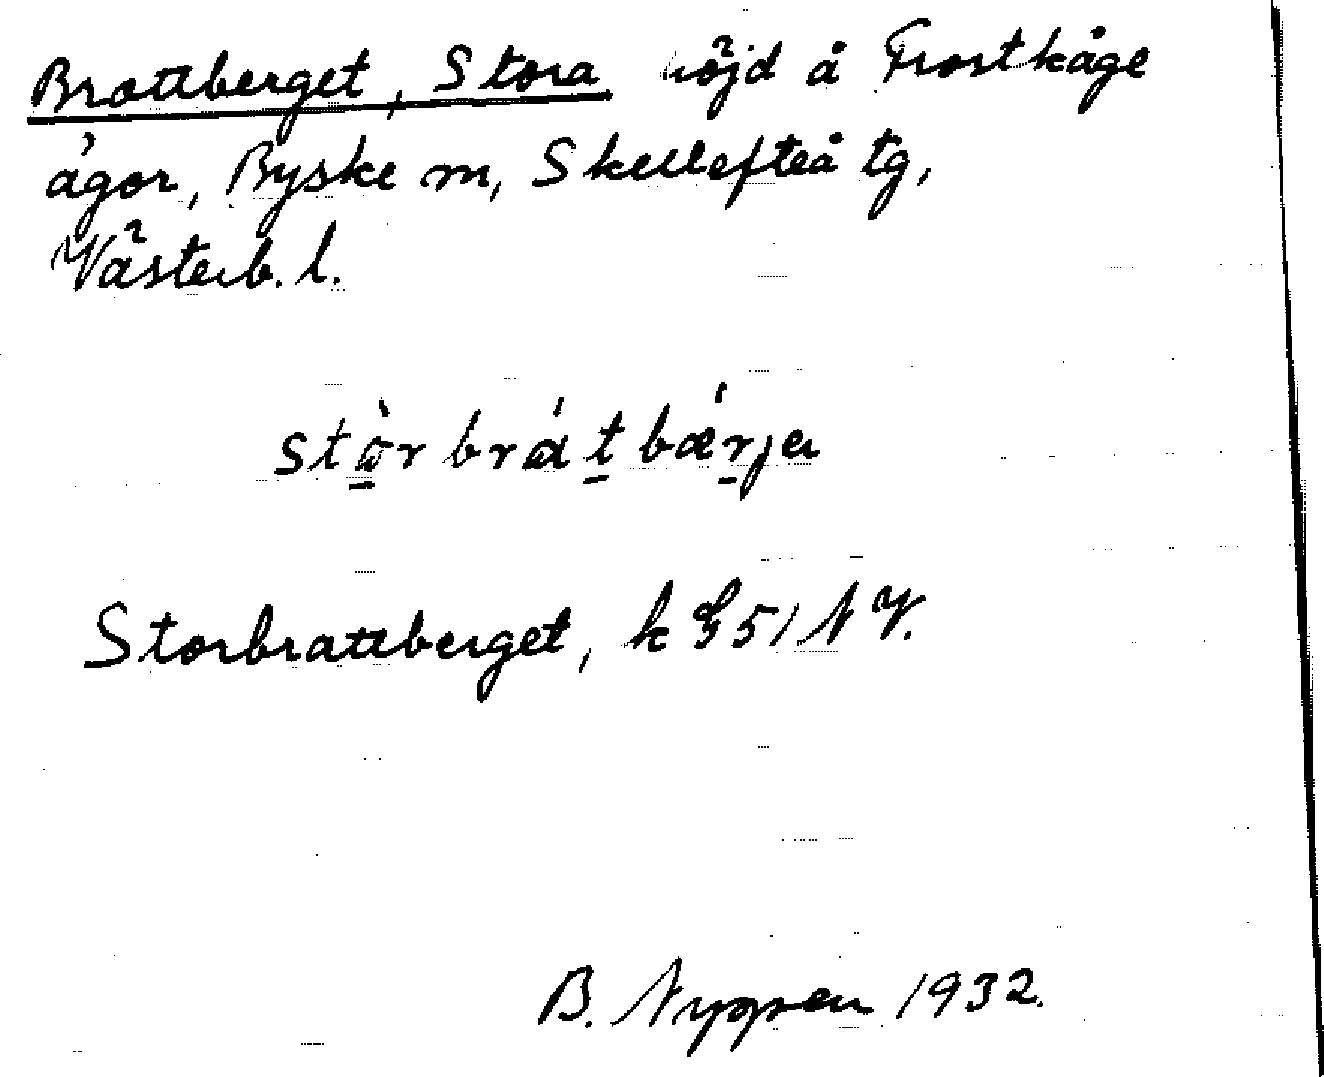 Brattberget, Stora höjd å Frostkåge
ägor, Byske sn, Skellefteå tg,
Västerb. l.
stòrbrátbǽrjə
Storbrattberget, k § 51 N V.
B. Nygren 1932.